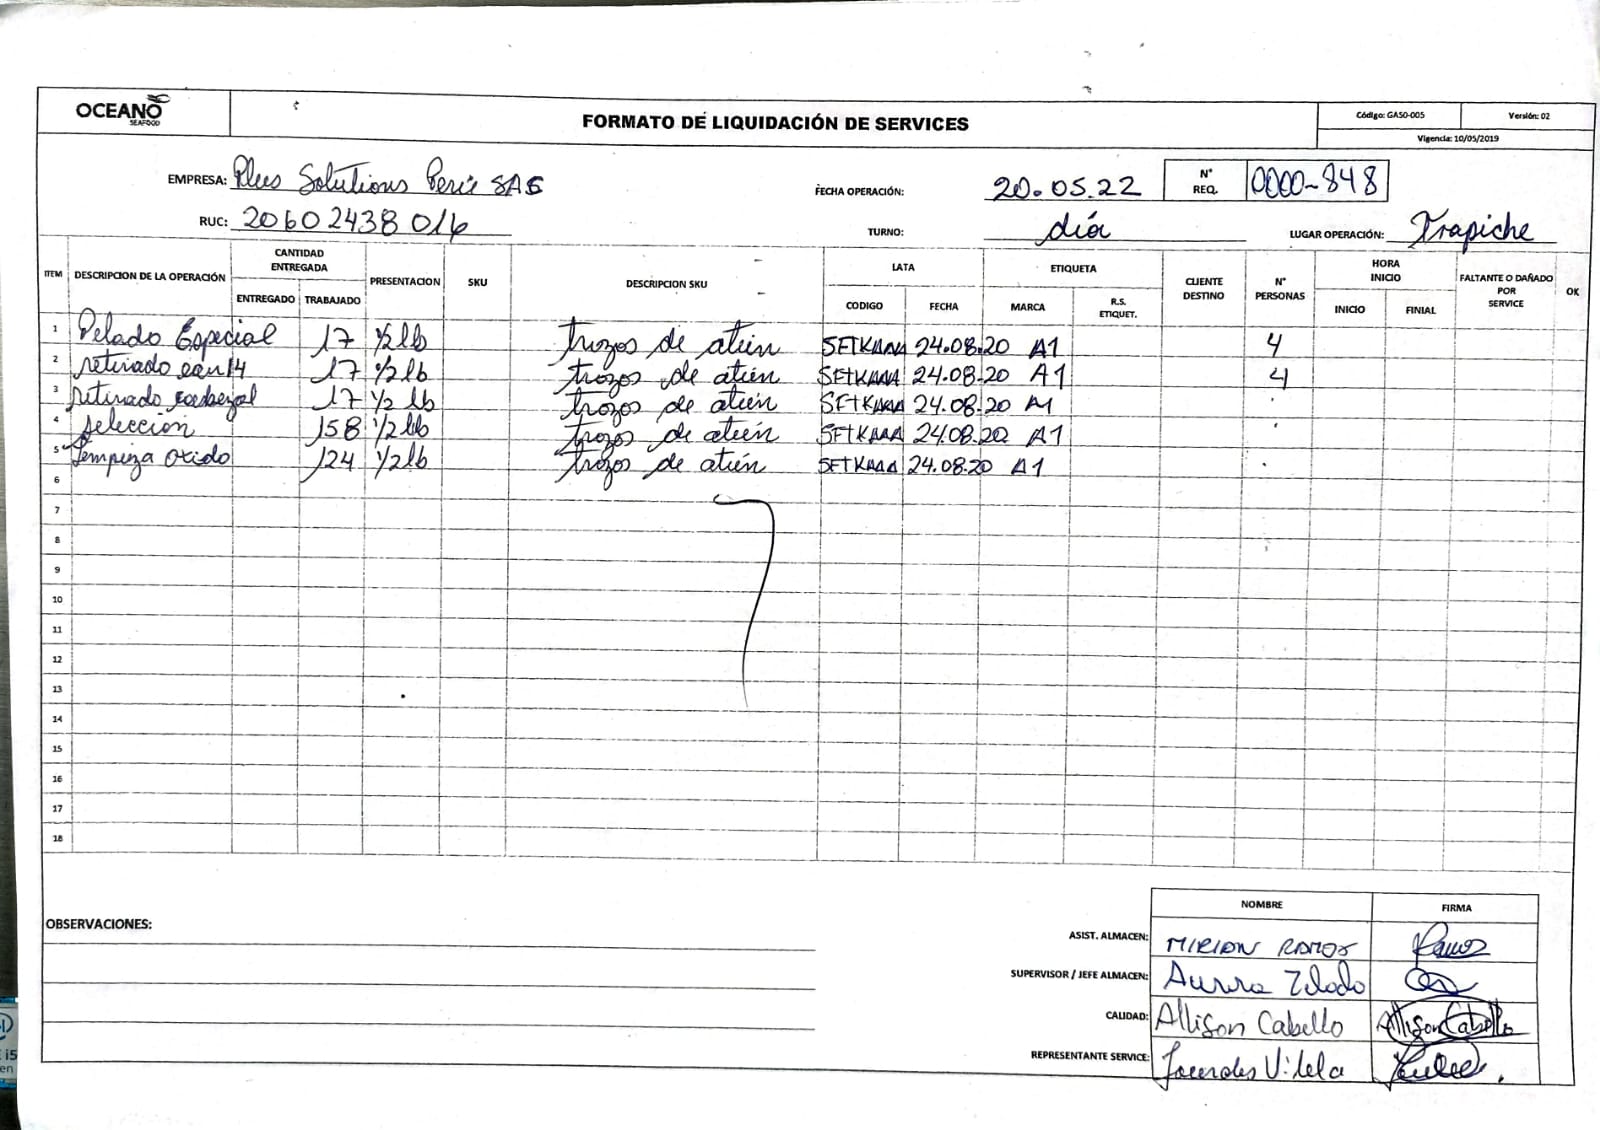 OCEANO
SEAFOOD
FORMATO DE LIQUIDACIÓN DE SERVICES
Código: GA50-005 Versión: 02
Vigencia: 10/05/2019
EMPRESA: Plus Solutions Perú SAC
FECHA OPERACIÓN: 20.05.22
N° REQ. 0000-848
RUC: 20602438016
TURNO: día
LUGAR OPERACIÓN: Trapiche
ITEM DESCRIPCION DE LA OPERACIÓN CANTIDAD ENTREGADA PRESENTACION SKU DESCRIPCION SKU LATA ETIQUETA CLIENTE DESTINO N° PERSONAS HORA INICIO FALTANTE O DAÑADO POR SERVICE OK
ENTREGADO TRABAJADO CODIGO FECHA MARCA R.S. ETIQUET. INICIO FINIAL
1 Pelado Especial 17 1/2 lb trozos de atún 24.08.20 A1 4
2 retirado ean14 17 1/2 lb trozos de atún 24.08.20 A1 4
3 retirado 17 1/2 lb trozos de atún 24.08.20 A1
4 selección 158 1/2 lb trozos de atún 24.08.20 A1
5 Limpieza Oxido 124 1/2 lb trozos de atún 24.08.20 A1
6
7
8
9
10
11
12
13
14
15
16
17
18
OBSERVACIONES:
NOMBRE FIRMA
ASIST. ALMACEN: MIRIAN RAMOS Ramos
SUPERVISOR / JEFE ALMACEN:
CALIDAD: Allison Cabello Allison Cabello
REPRESENTANTE SERVICE: Lourdes Vilela